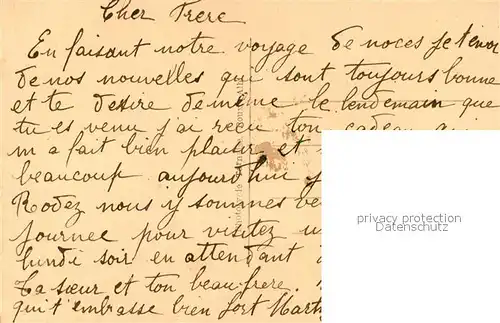 Cher Frere
En faisant notre voyage de noces je t'envoi
de nos nouvelles qui sont toujours bonne
et te desire de même le lendemain que
tu es venu j'ai reçu ton cadeau qui
m a fait bien plaisir et
beaucoup aujourd'hui
Rodez nous y sommes
journee pour visitez
lundi soir en attendant
Ta sœur et ton beau-frere.
qui t'embrasse bien fort Marth
privacy protection
Datenschutz